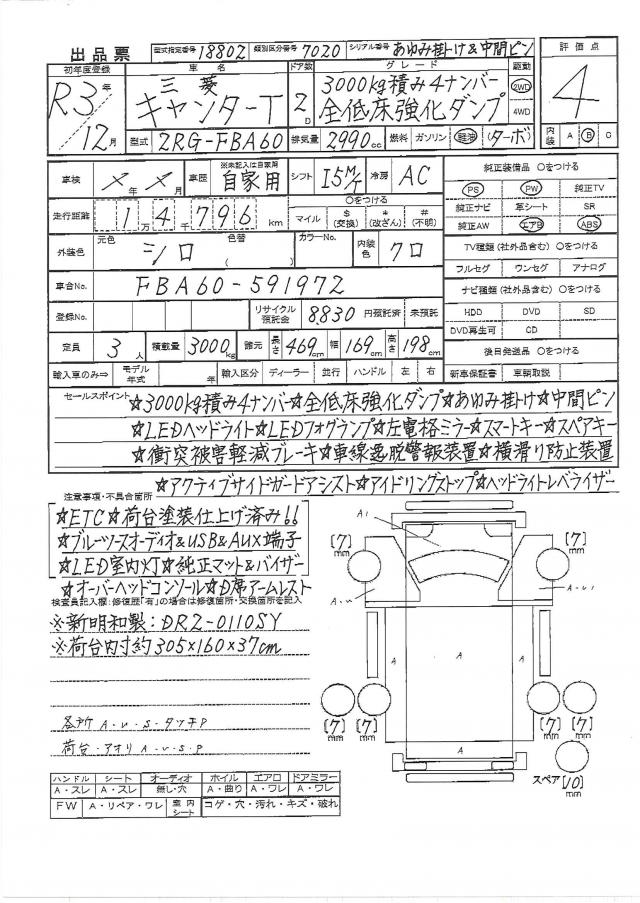 出品票 型式指定番号 18802 類別区分番号 7020 シリアル番号 あゆみ掛け&中間ピン
評価点
4
内装 A B C
初年度登録 車名 ドア数 グレード 駆動
R3年 12月
三菱
キャンターT
2D
3000kg積み4ナンバー
全低床強化ダンプ
2WD
4WD
型式 2RG-FBA60 排気量 2990cc 燃料 ガソリン 軽油 (ターボ)
車検 メ年 メ月 車歴 ※未記入は自家用 自家用 シフト I5M/T 冷房 AC
走行距離 1万4千796km
○をつける
マイル $(交換) *(改ざん) #(不明)
外装色 元色 シロ 色替 ( ) カラーNo. 内装色 クロ
車台No. FBA60-591972
登録No. リサイクル預託金 8,830 円預託済 未預託
定員 3人 積載量 3000kg 諸元 長さ 469cm 幅 169cm 高さ 198cm
輸入車のみ⇒ モデル年式 年 輸入区分 ディーラー 並行 ハンドル 左 右
純正装備品 ○をつける
PS PW 純正TV
純正ナビ 革シート SR
純正AW エアB ABS
TV種類(社外品含む) ○をつける
フルセグ ワンセグ アナログ
ナビ種類(社外品含む) ○をつける
HDD DVD SD
DVD再生可 CD
後日発送品 ○をつける
新車保証書 車輌取説
セールスポイント
☆3000kg積み4ナンバー☆全低床強化ダンプ☆あゆみ掛け☆中間ピン
☆LEDヘッドライト☆LEDフォグランプ☆左電格ミラー☆スマートキー☆スペアキー
☆衝突被害軽減ブレーキ☆車線逸脱警報装置☆横滑り防止装置
☆アクティブサイドガードアシスト☆アイドリングストップ☆ヘッドライトレベライザー
注意事項・不具合箇所
☆ETC☆荷台塗装仕上げ済み!!
☆ブルーツースオーディオ&USB&AUX端子
☆LED室内灯☆純正マット&バイザー
☆オーバーヘッドコンソール☆D席アームレスト
検査員記入欄:修復歴「有」の場合は修復箇所・交換箇所を記入
※新明和製:DR2-0110SY
※荷台内寸約305×160×37cm
各所 A・U・S・タッチP
荷台・アオリ A・U・S・P
A1
[7]mm
[7]mm
A・U
A・U1
A
A
A
[7]mm
[7]mm
[7]mm
[7]mm
A
スペア[10]mm
ハンドル シート オーディオ ホイル エアロ ドアミラー
A・スレ A・スレ 無し・穴 A・曲り A・ワレ A・ワレ
FW A・リペア・ワレ 室内シート コゲ・穴・汚れ・キズ・破れ